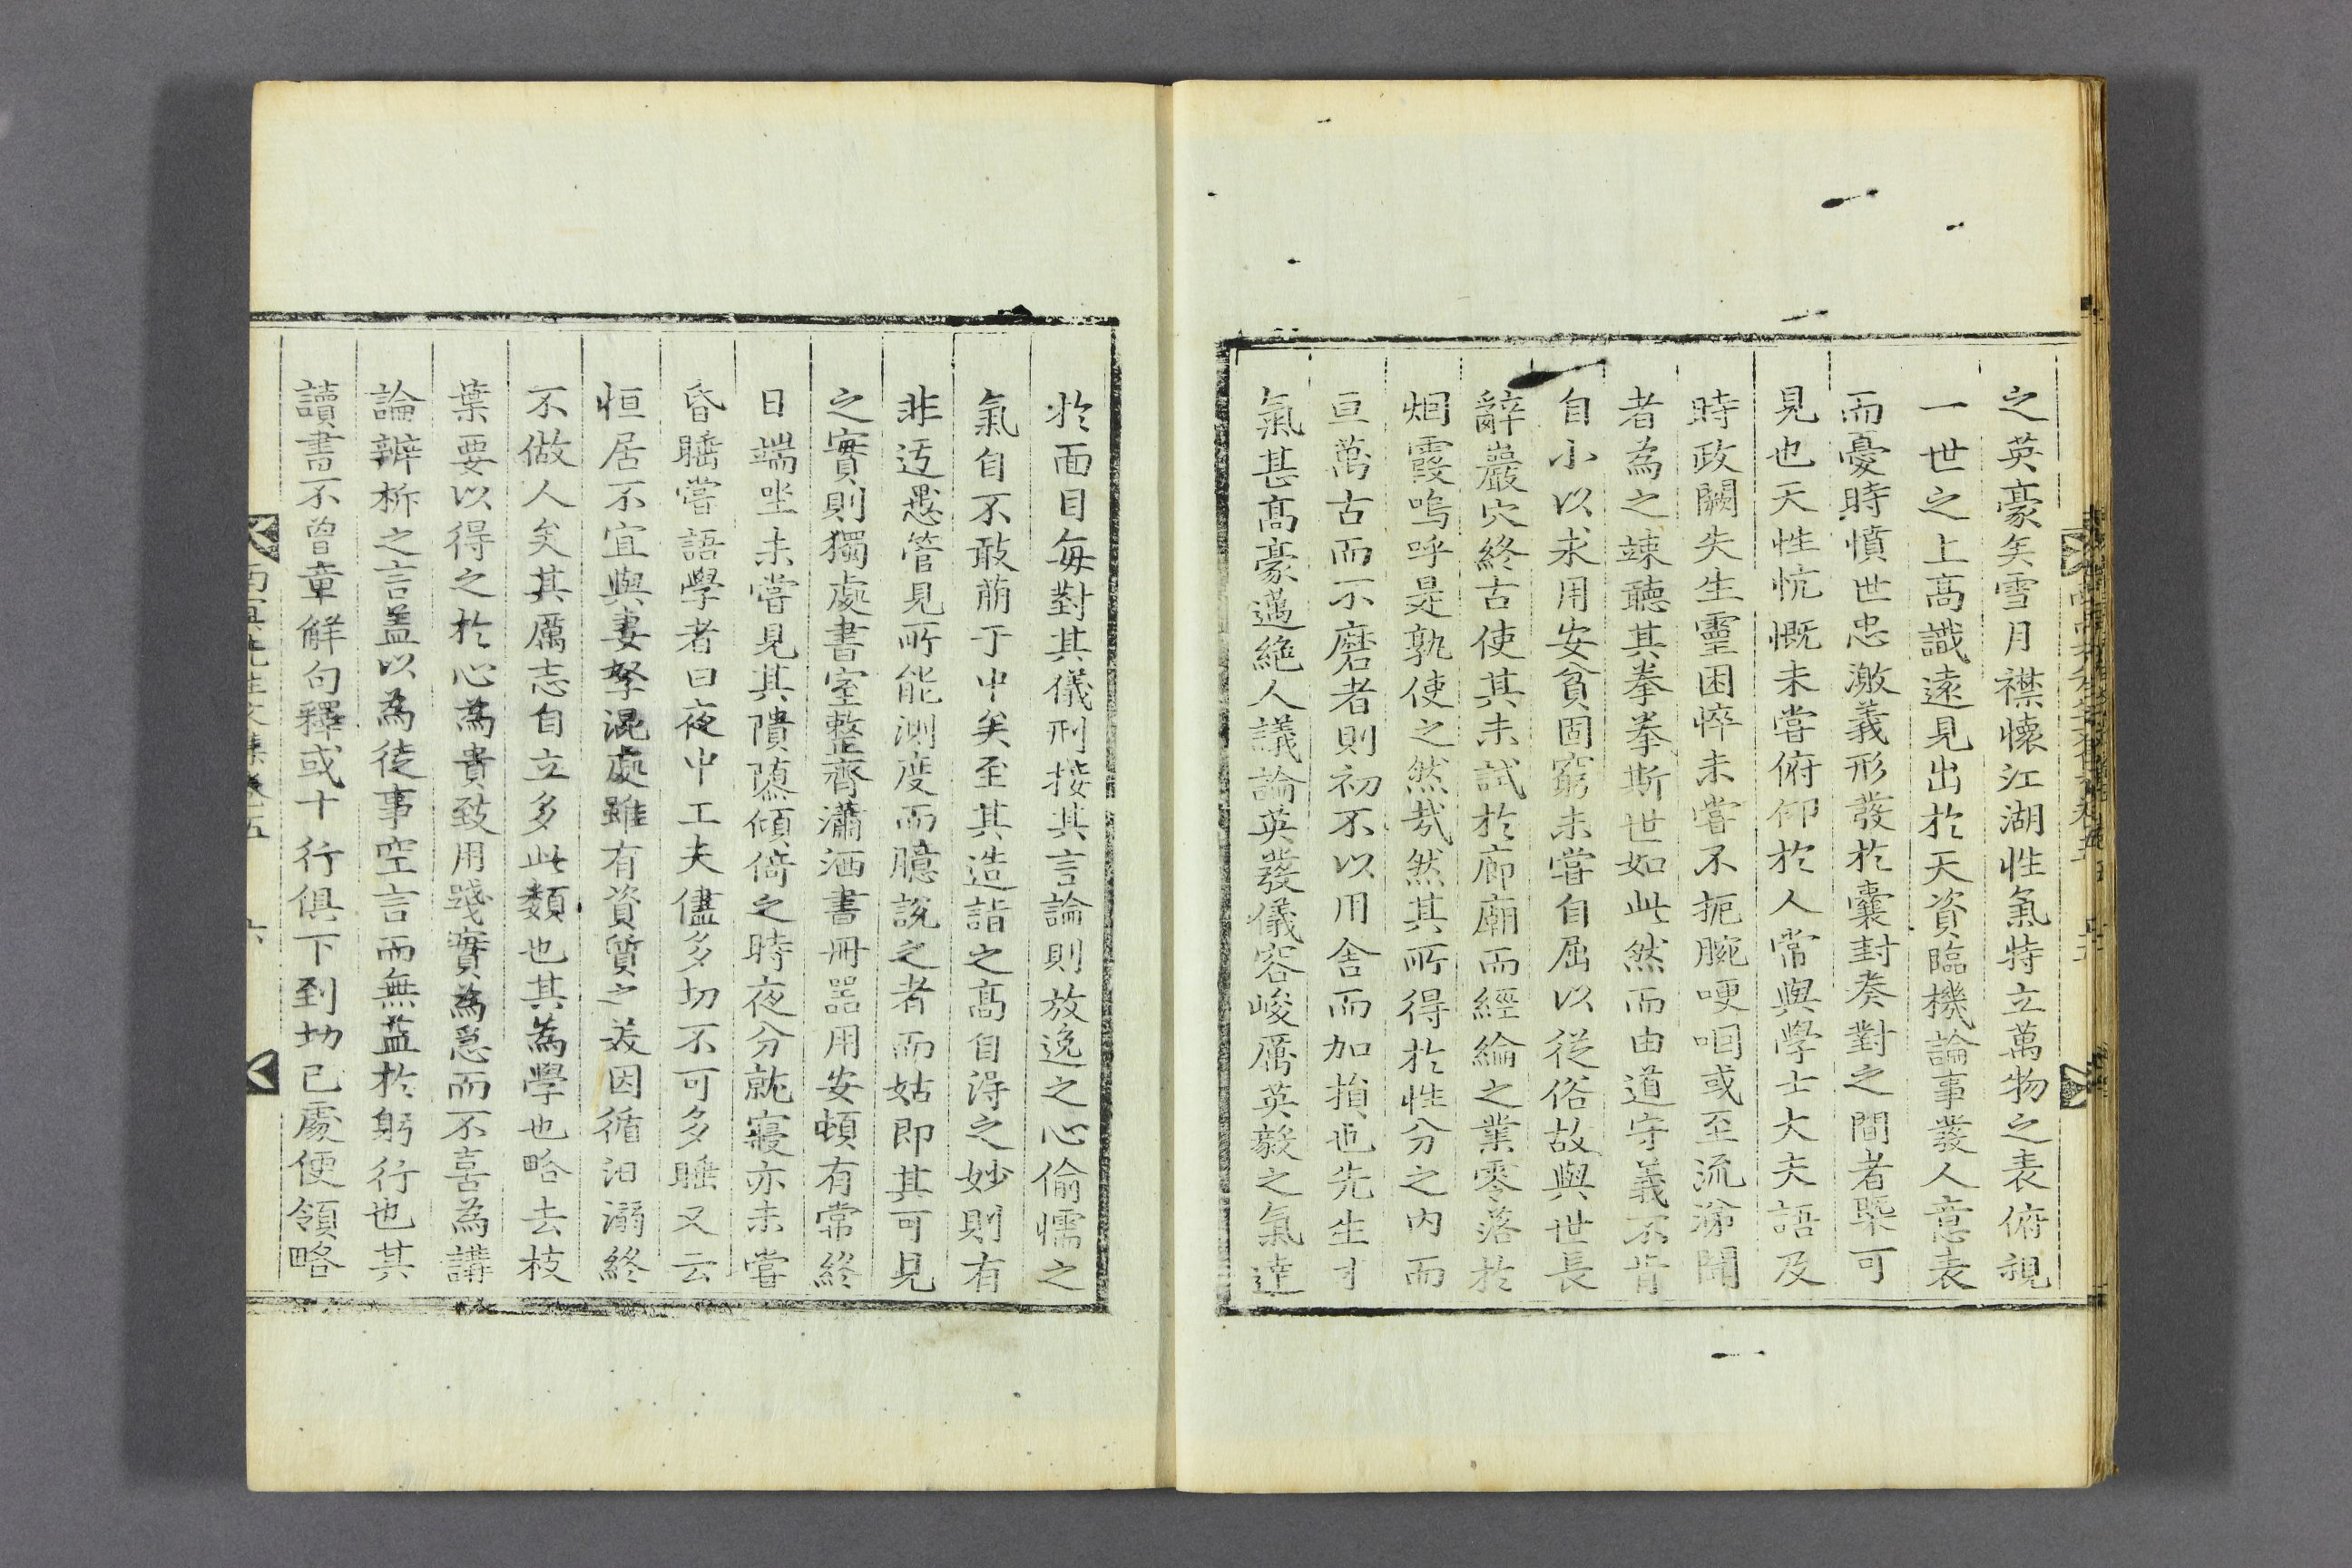 之英豪矣雪月襟懷江湖性氣特立萬物之表俯視
一世之上高識遠見出於天資臨機論事發人意表
而憂時憤世忠激義形發於囊封奏對之間者槩可
見也天性忼慨未嘗俯仰於人常與學士大夫語及
時政闕失生靈困悴未嘗不扼腕哽咽或至流涕聞
者為之竦聽其拳拳斯世如此然而由道守義不肯
自小以求用安貧固窮未嘗自屈以從俗故與世長
辭巖穴終古使其未試於廊廟而經綸之業零落於
烟霞嗚呼是孰使之然㢤然其所得於性分之內而
亘萬古而不磨者則初不以用舍而加損也先生才
氣甚高豪邁絶人議論英發儀容峻厲英毅之氣達
於面目每對其儀刑接其言論則放逸之心偷懦之
氣自不敢萠于中矣至其造詣之高自淂之妙則有
非迃愚管見所能測度而臆說之者而姑即其可見
之實則獨處書室整齊瀟洒書冊器用安頓有常終
日端坐未嘗見其隤隳傾倚之時夜分就寢亦未嘗
昏睡嘗語學者曰夜中工夫儘多切不可多睡又云
恒居不宜與妻孥混處雖有資質之羙因循汩溺終
不做人矣其厲志自立多此類也其為學也略去枝
葉要以得之於心為貴致用踐實為急而不喜為講
論辨析之言盖以為徒事空言而無益於躬行也其
讀書不曾章解句釋或十行俱下到切已處便領略
南冥先生文集卷五
六